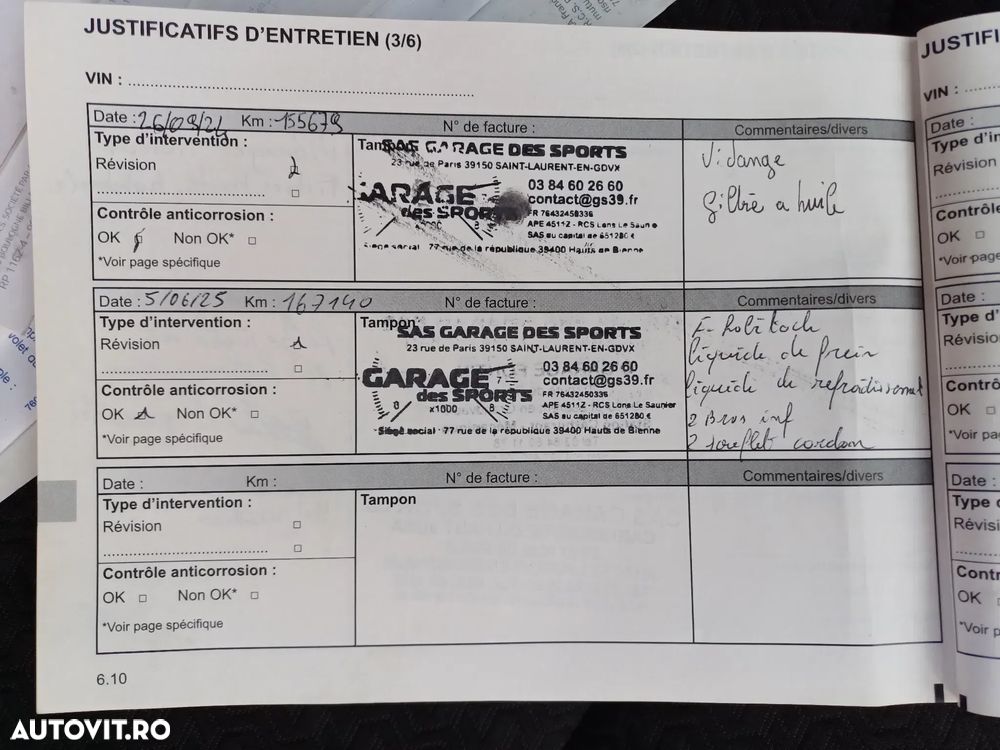 JUSTIFICATIFS D'ENTRETIEN (3/6)
VIN :
Date : 26/09/24 Km : 155679 N° de facture : Commentaires/divers
Type d'intervention :
Révision
Contrôle anticorrosion :
OK Non OK*
*Voir page spécifique
Tampon
SAS GARAGE DES SPORTS
23 rue de Paris 39150 SAINT-LAURENT-EN-GDVX
GARAGE
des SPORTS
03 84 60 26 60
contact@gs39.fr
FR 76432450336
APE 4511Z - RCS Lons Le Saunie
SAS au capital de 651280 €
Siege social 77 rue de la république 39400 Hauts de Bienne
Vidange
filtre a huile
Date : 5/06/25 Km : 167140 N° de facture : Commentaires/divers
Type d'intervention :
Révision
Contrôle anticorrosion :
OK Non OK*
*Voir page spécifique
Tampon
SAS GARAGE DES SPORTS
23 rue de Paris 39150 SAINT-LAURENT-EN-GDVX
GARAGE
des SPORTS
7
0 x1000 8
03 84 60 26 60
contact@gs39.fr
FR 76432450336
APE 4511Z - RCS Lons Le Saunier
SAS au capital de 651280 €
Siège social : 77 rue de la république 39400 Hauts de Bienne
liquide de frein
liquide de refroidissement
2 Bras inf
2 soufflet cardan
Date : Km : N° de facture : Commentaires/divers
Type d'intervention :
Révision
Contrôle anticorrosion :
OK Non OK*
*Voir page spécifique
Tampon
6.10
JUSTIFI
VIN :
Date :
Type d'in
Révision
Contrôle
OK
*Voir page
Date :
Type d'
Révision
Contrô
OK
*Voir pag
Date :
Type
Révisi
Contr
OK
*Voir p
AUTOVIT.RO